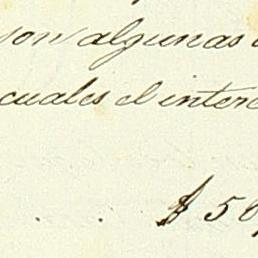 son algunas
cuales el inter
$ 56